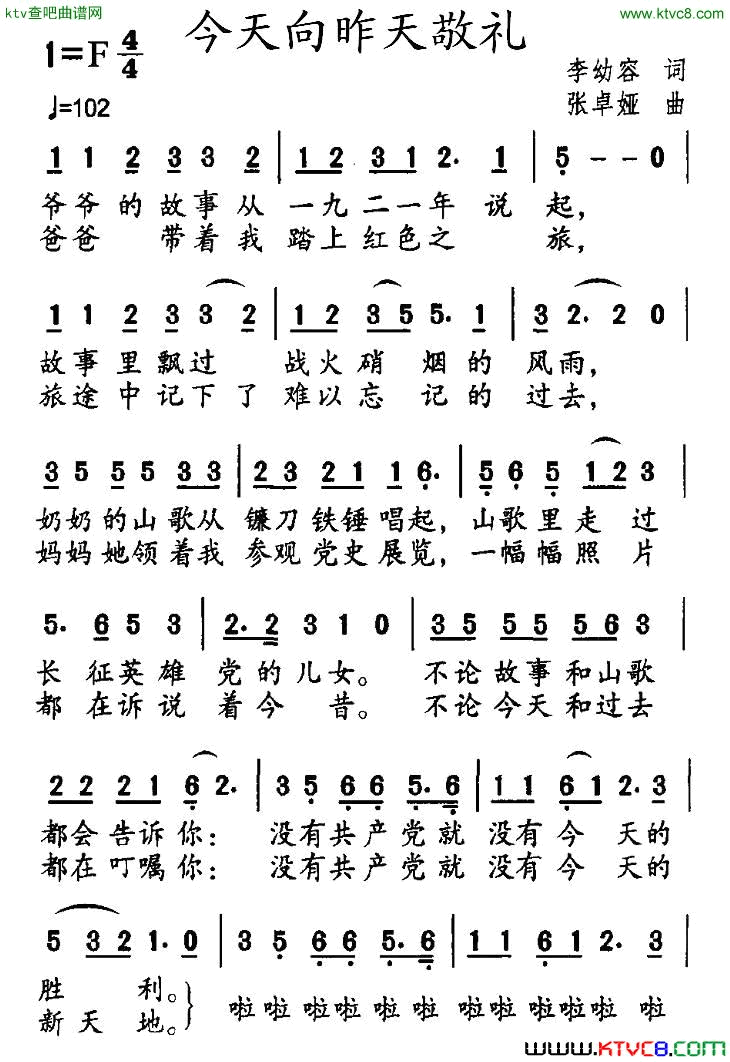 ktv查吧曲谱网
www.ktvc8.com
今天向昨天敬礼
1=F 4/4
♩=102
李幼容 词
张卓娅 曲
1 1 2 3 3 2 | 1 2 3 1 2. 1 | 5 - - 0 |
爷爷的故事从 一九二一年 说 起,
爸爸 带着我 踏上红色之 旅,
1 1 2 3 3 2 | 1 2 3 5 5. 1 | 3 2. 2 0
故事里飘过 战火硝 烟的 风雨,
旅途中记下了 难以忘 记的 过去,
3 5 5 5 5 3 3 | 2 3 2 1 1 6. | 5 6 5 1 2 3
奶奶的山歌从 镰刀铁锤唱起, 山歌里走 过
妈妈她领着我 参观党史展览, 一幅幅照 片
5. 6 5 3 | 2. 2 3 1 0 | 3 5 5 5 5 6 3
长 征英雄 党的儿女。 不论故事和山歌
都 在诉说 着今 昔。 不论今天和过去
2 2 2 1 6 2. | 3 5 6 6 5. 6 | 1 1 6 1 2. 3 |
都会告诉你: 没有共产党就 没有今 天的
都在叮嘱你: 没有共产党就 没有今 天的
5 3 2 1. 0 | 3 5 6 6 5. 6 | 1 1 6 1 2. 3 |
胜 利。
新天 地。
啦 啦 啦啦 啦 啦 啦啦啦啦 啦 啦
www.KTVC8.com